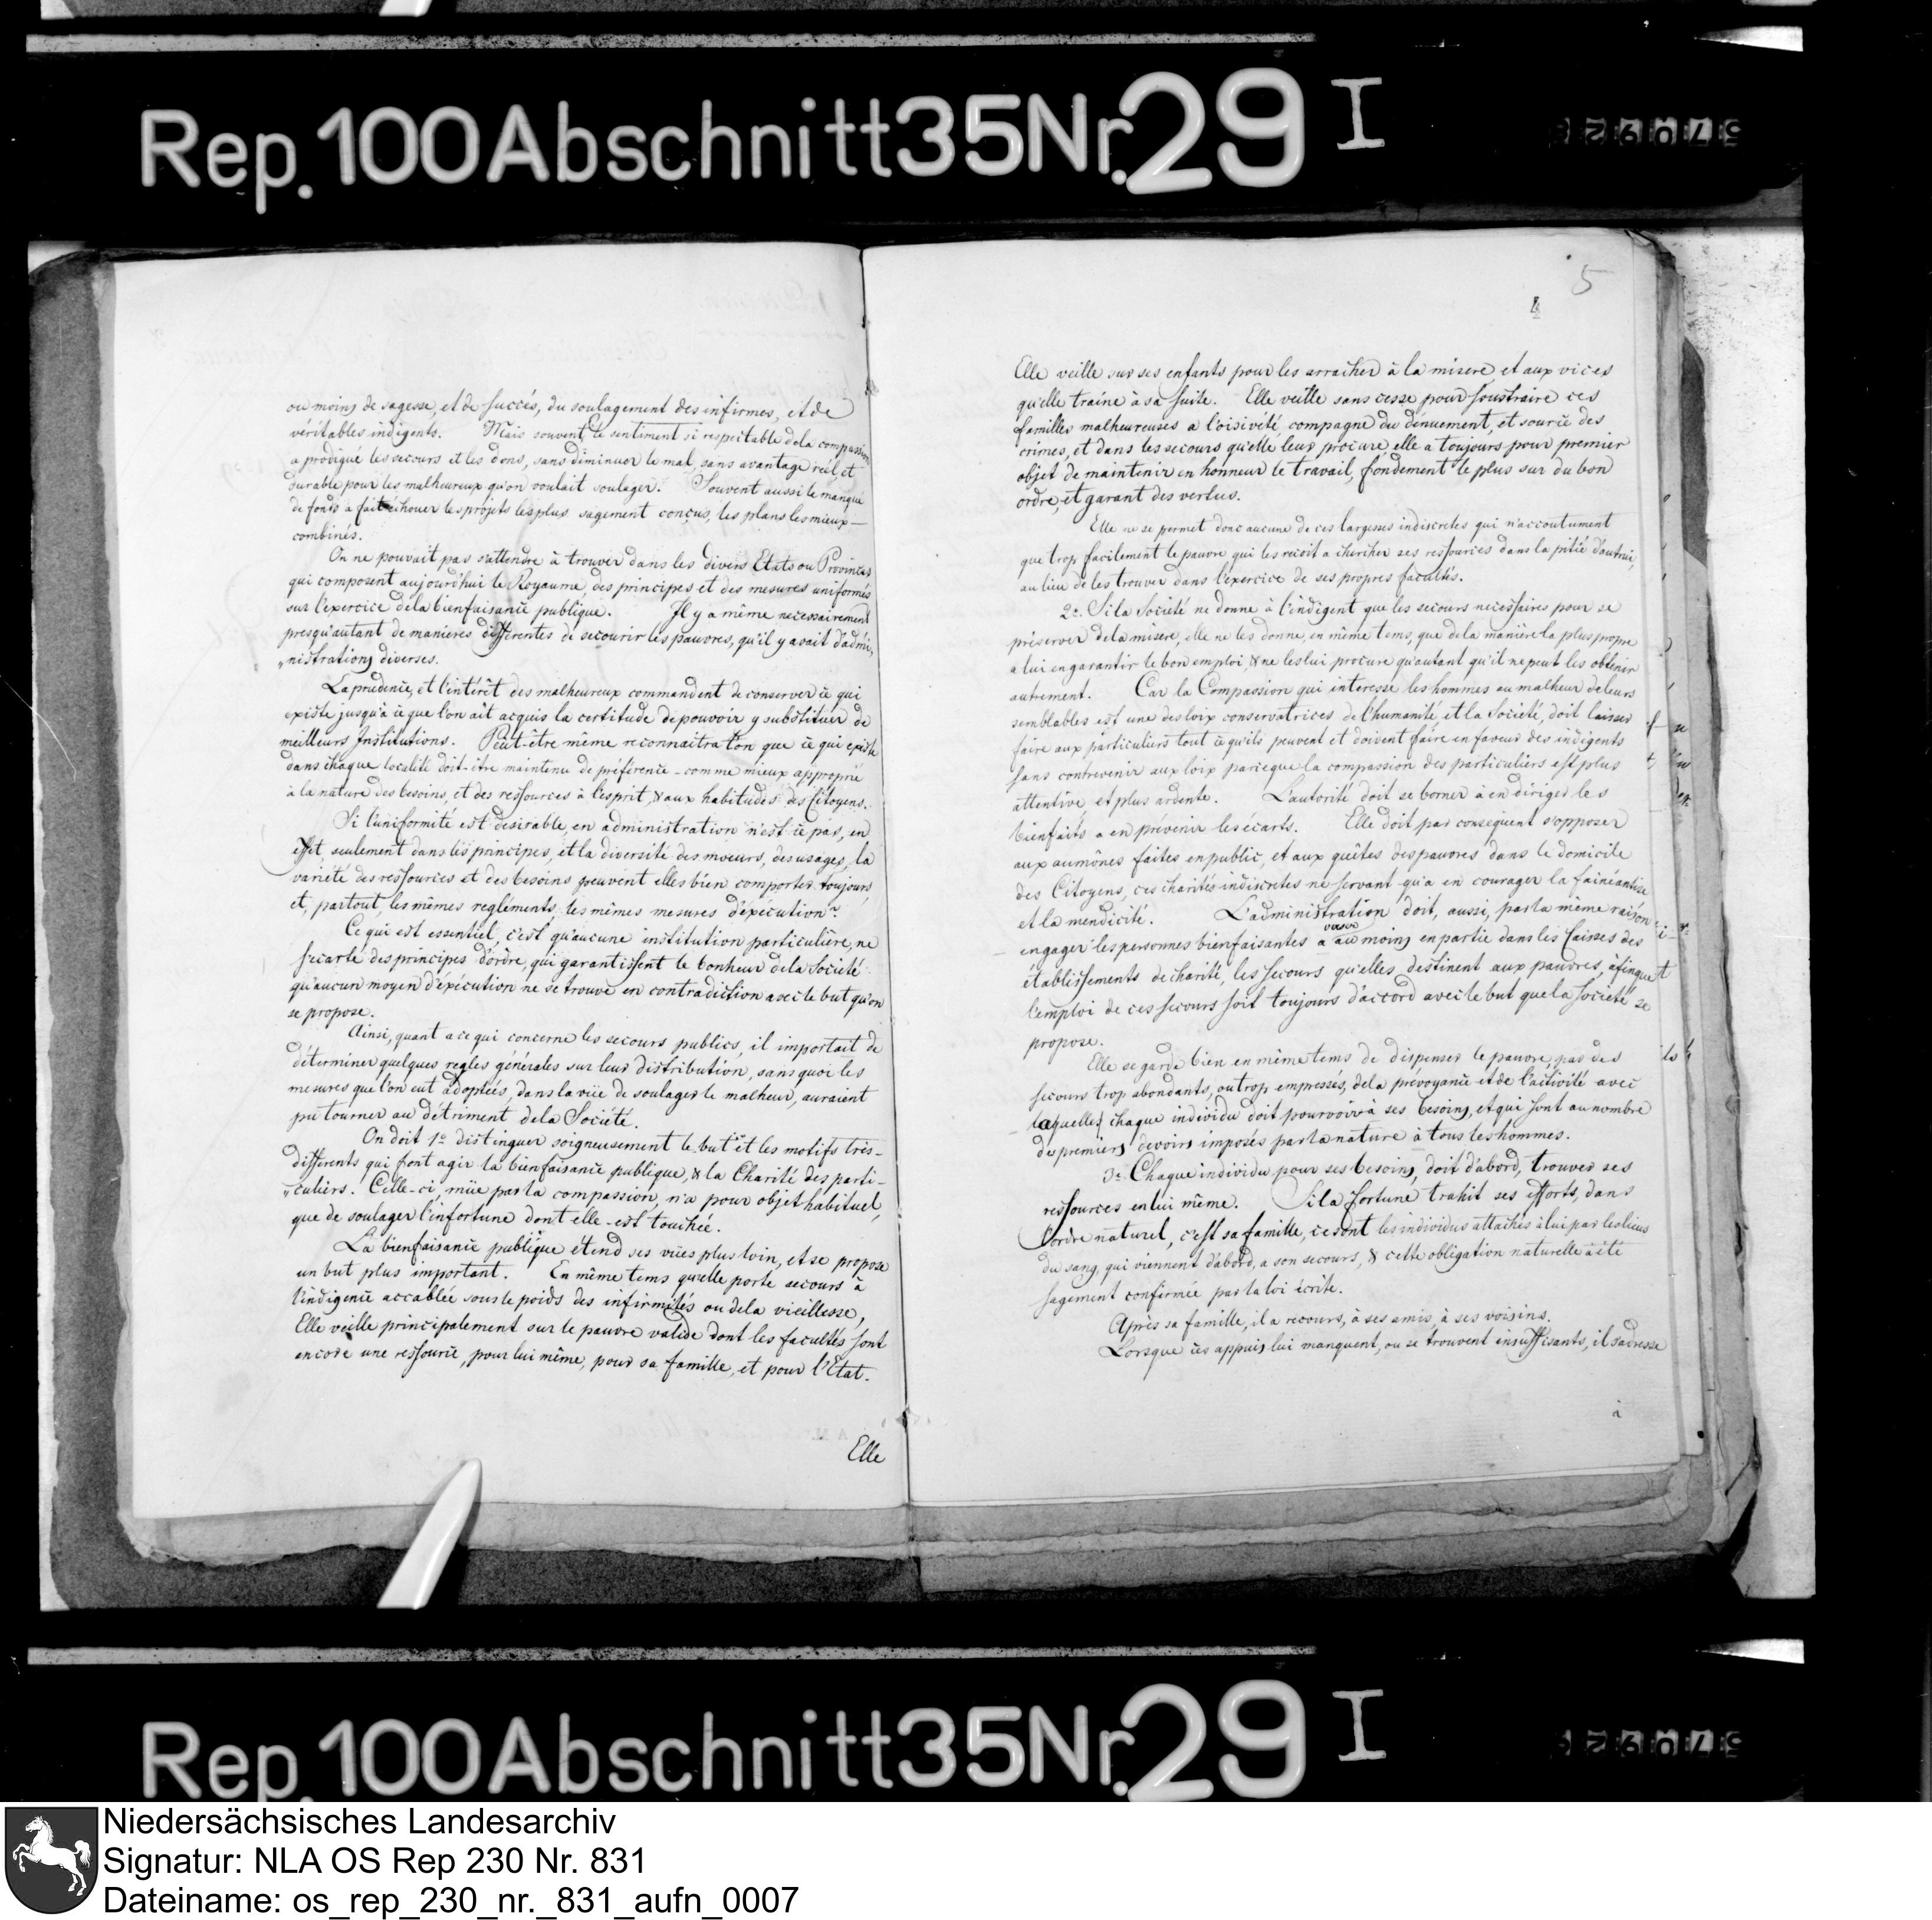 Rep. 100 Abschnitt 35 Nr. 29 I
ou moins de sagesse, et de succés, du soulagement des infirmes, et de
véritables indigents. Mais souvent, le sentiment si respectable de la compassion
a prodigué les secours et les dons, sans diminuer le mal, sans avantage réel, et
durable pour les malheureux qu'on voulait soulager. Souvent aussi le manque
de fonds a fait échouer les projets les plus sagement conçus, les plans les mieux
combinés.
On ne pouvait pas s'attendre à trouver dans les divers Etats ou Provinces
qui composent aujourd'hui le Royaume, des principes et des mesures uniformes
sur l'exercice de la bienfaisance publique. Il y a même necessairement
presqu'autant de manières differentes de secourir les pauvres, qu'il y avait d'admi-
„nistrations diverses.
La prudence, et l'intérêt des malheureux commandent de conserver ce qui
existe jusqu'à ce que l'on ait acquis la certitude de pouvoir y substituer de
meilleurs Institutions. Peut-être même reconnaitra t'on que ce qui existe
dans chaque localité doit-être maintenu de préférence - comme mieux approprié
à la nature des besoins, et des ressources à l'esprit, & aux habitudes des Citoyens.
Si l'uniformité est desirable, en administration n'est ce pas, en
effet, seulement dans les principes, et la diversité des moeurs, des usages, la
varieté des ressources et des besoins peuvent elles bien comporter toujours,
et, partout, les mêmes regléments, les mêmes mesures d'éxécution?
Ce qui est essentiel, c'est qu'aucune institution particulière, ne
s'ecarte des principes d'ordre, qui garantissent le bonheur de la Societé
qu'aucun moyen d'éxécution ne se trouve en contradiction avec le but qu'on
se propose.
Ainsi, quant a ce qui concerne les secours publics, il importait de
déterminer quelques regles générales sur leur distribution, sans quoi les
mesures que l'on eut adoptées, dans la vüe de soulager le malheur, auraient
pu tourner au détriment de la Société.
On doit 1o distinguer soigneusement le but et les motifs très-
differents qui font agir la bienfaisance publique, & la Charité des parti-
„culiers. Celle-ci, müe par la compassion, n'a pour objet habituel,
que de soulager l'infortune dont elle-est touchée.
La bienfaisance publique étend ses vües plus loin, et se propose
un but plus important. En même tems qu'elle porte secours à
l'indigence accablée sous le poids des infirmités ou de la vieillesse,
Elle veille principalement sur le pauvre valide dont les facultés sont
encore une ressource, pour lui même, pour sa famille, et pour l'Etat.
Elle
5
4
Elle veille sur ses enfants pour les arracher à la misere, et aux vices
qu'elle traîne à sa suite. Elle veille sans cesse pour soustraire ces
familles malheureuses a l'oisivité, compagne du dénuement, et source des
crimes, et dans les secours qu'elle leur procure, elle a toujours pour premier
objet de maintenir en honneur le travail, fondement le plus sur du bon
ordre, et garant des vertus.
Elle ne se permet donc aucune de ces largesses indiscretes qui n'accoutument
que trop facilement le pauvre qui les recoit a chercher ses ressources dans la pitié d'autrui,
au lieu de les trouver dans l'éxercice de ses propres facultés.
2o. Si la Société ne donne à l'indigent que les secours necessaires pour se
préserver de la misere, elle ne les donne, en même tems, que de la manière la plus propre
a lui en garantir le bon emploi & ne les lui procure qu'autant qu'il ne peut les obtenir
autrement. Car la Compassion qui interesse les hommes au malheur de leurs
semblables est une des loix conservatrices de l'humanité, et la Société, doit laisser
faire aux particuliers tout ce qu'ils peuvent et doivent faire en faveur des indigents
sans contrevenir aux loix parceque la compassion des particuliers est plus
attentive et plus ardente. L'autorité doit se borner à en diriger les
bienfaits a en prévenir les écarts. Elle doit par consequent s'opposer
aux aumônes faites en public, et aux quêtes des pauvres dans le domicile
des Citoyens, ces charités indiscretes ne servant qu'a en courager la fainéantise
et la mendicité. L'administration doit, aussi, par la même raison
verser
engager les personnes bienfaisantes a au moins en partie dans les Caisses des
établissements de charité, les secours qu'elles destinent aux pauvres, àfinque
l'emploi de ces secours soit toujours d'accord avec le but que la Societé se
propose.
Elle se garde bien en même tems de dispenser le pauvre, par des
secours trop abondants, ou trop empressés, de la prévoyance et de l'activité avec
laquelle chaque individu doit pourvoir à ses besoins, et qui sont au nombre
des premiers devoirs imposés par la nature à tous les hommes.
3o. Chaque individu pour ses besoins, doit d'abord, trouver ses
ressources en lui même. Si la fortune trahit ses efforts, dans
l'ordre naturel, c'est sa famille, ce sont les individus attachés à lui par les liens
du sang, qui viennent d'abord, a son secours, & cette obligation naturelle à été
sagement confirmée par la loi écrite.
Après sa famille, il a recours, à ses amis, à ses voisins.
Lorsque ces appuis lui manquent, ou se trouvent insuffisants, il s'adresse
à
Rep. 100 Abschnitt 35 Nr. 29 I
Niedersächsisches Landesarchiv
Signatur: NLA OS Rep 230 Nr. 831
Dateiname: os_rep_230_nr._831_aufn_0007